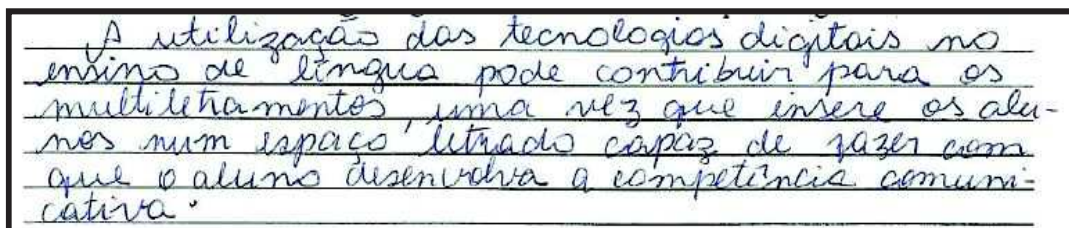 A utilização das tecnologias digitais no
ensino de língua pode contribuir para os
multiletramentos, uma vez que insere os alu-
nos num espaço letrado capaz de fazer com
que o aluno desenvolva a competência comuni-
cativa.